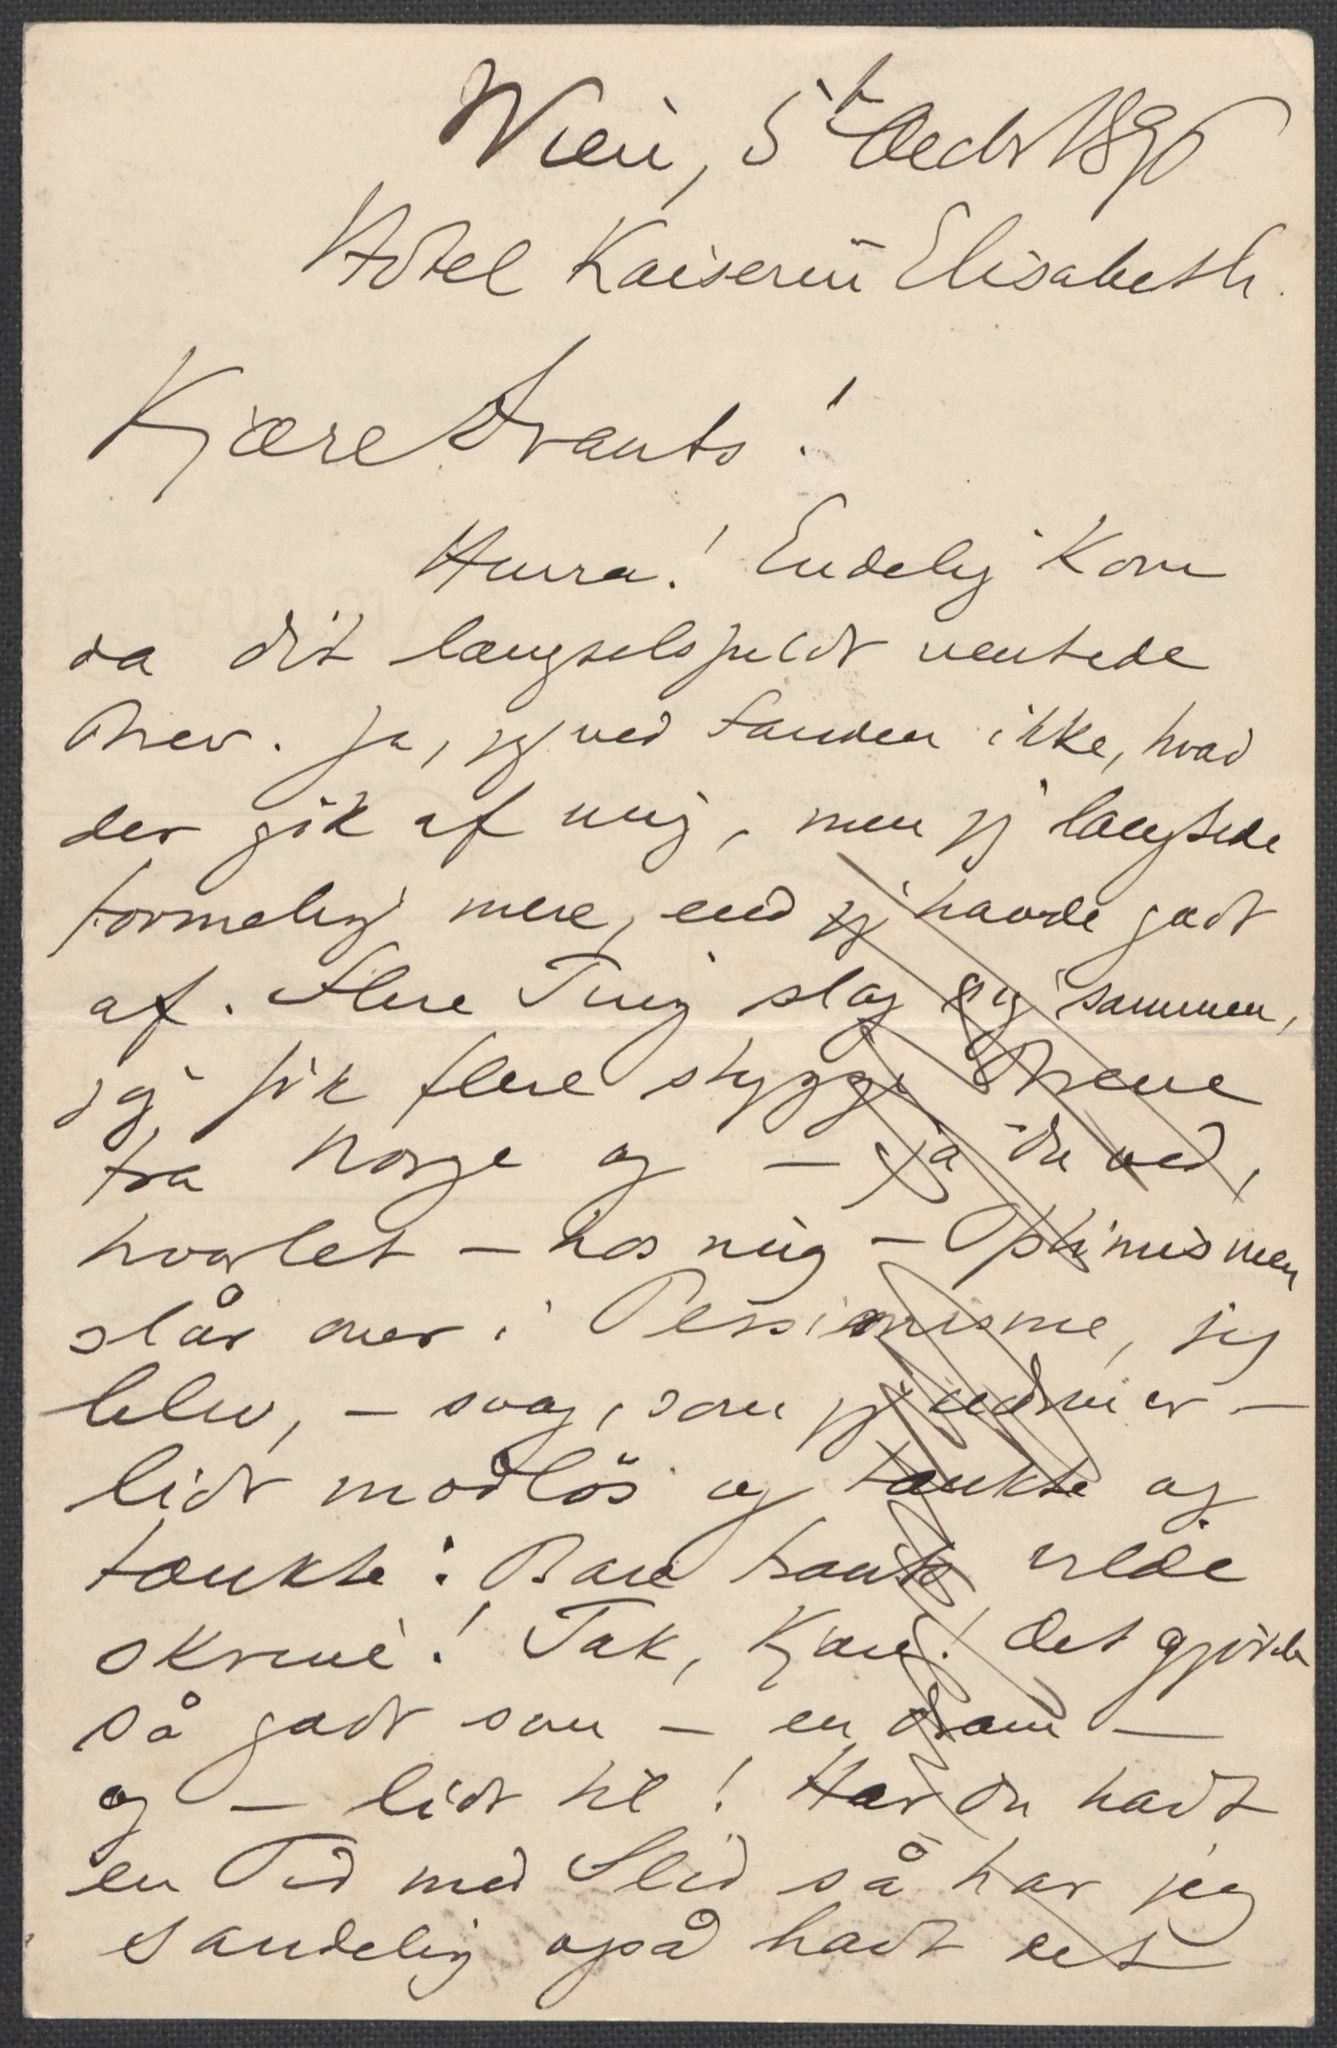 Wien, 5te Decbr 1896
Hotel Kaiserin Elisabeth.
Kjære Frants!
Hurra! Endelig kom
da dit længselsfuldt ventede
Brev. Ja, jeg ved Fanden ikke, hvad
der gik af mig, men jeg længtede
formelig mere, end jeg havde godt
af. Flere Ting slog sig sammen,
jeg fik flere stygge Breve
fra Norge og – ja du ved,
hvorlet – hos mig – Optimismen
slår over i Pessimisme, jeg
blev, – svag, som jeg endnu er –
lidt modløs og tænkte og
tænkte: Bare Frants vilde
skrive! Tak, Kjære! Det gjorde
så godt som – en Dram –
og – lidt til! Har du hadt
en Tid med Slid så har jeg
sandelig også hadt det